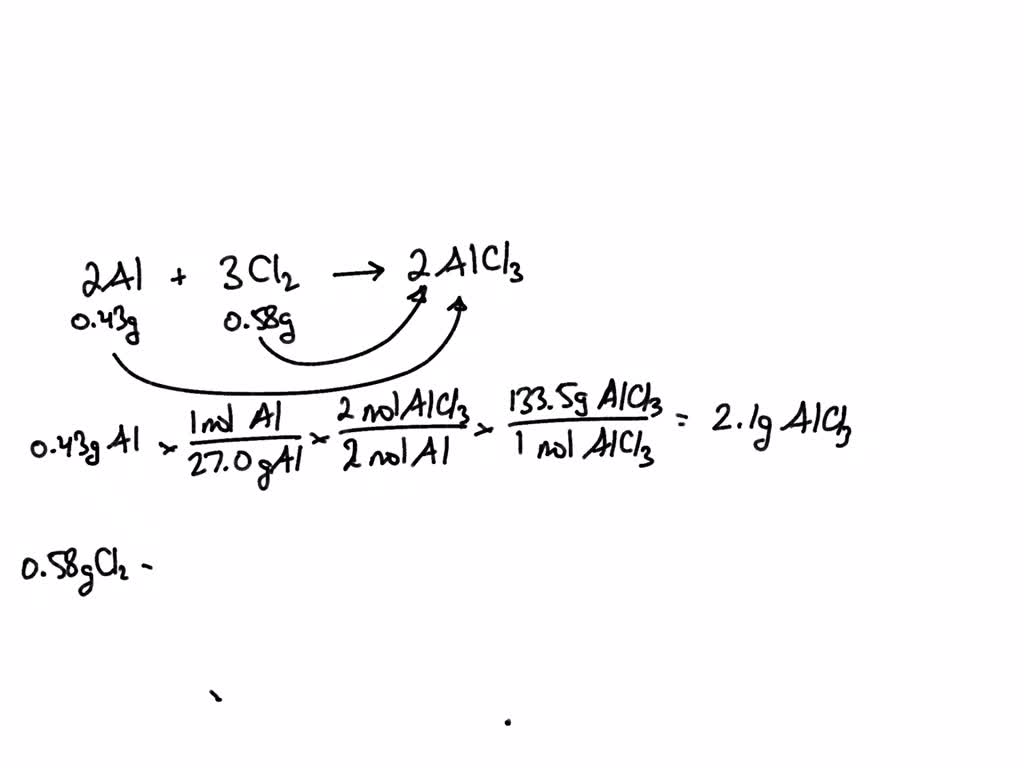 2Al + 3Cl₂ → 2AlCl₃
0.43g 0.58g
0.43g Al × 1 mol Al / 27.0 g Al × 2 mol AlCl₃ / 2 mol Al × 133.5g AlCl₃ / 1 mol AlCl₃ = 2.1g AlCl₃
0.58g Cl₂ -